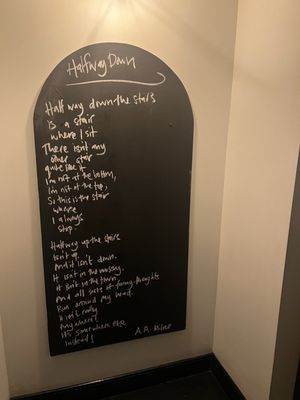 Halfway Down
Half way down the stairs
is a stair
where I sit
There isn't any
other stair
quite like it
I'm not at the bottom,
I'm not at the top,
So this is the stair
where
I always
stop.
Halfway up the stairs
Isn't up
And it isn't down.
It isn't in the nursery,
It isn't in the town,
And all sorts of funny thoughts
Run around my head.
It isn't really
Anywhere!
It's somewhere else
Instead!
A.A. Milne